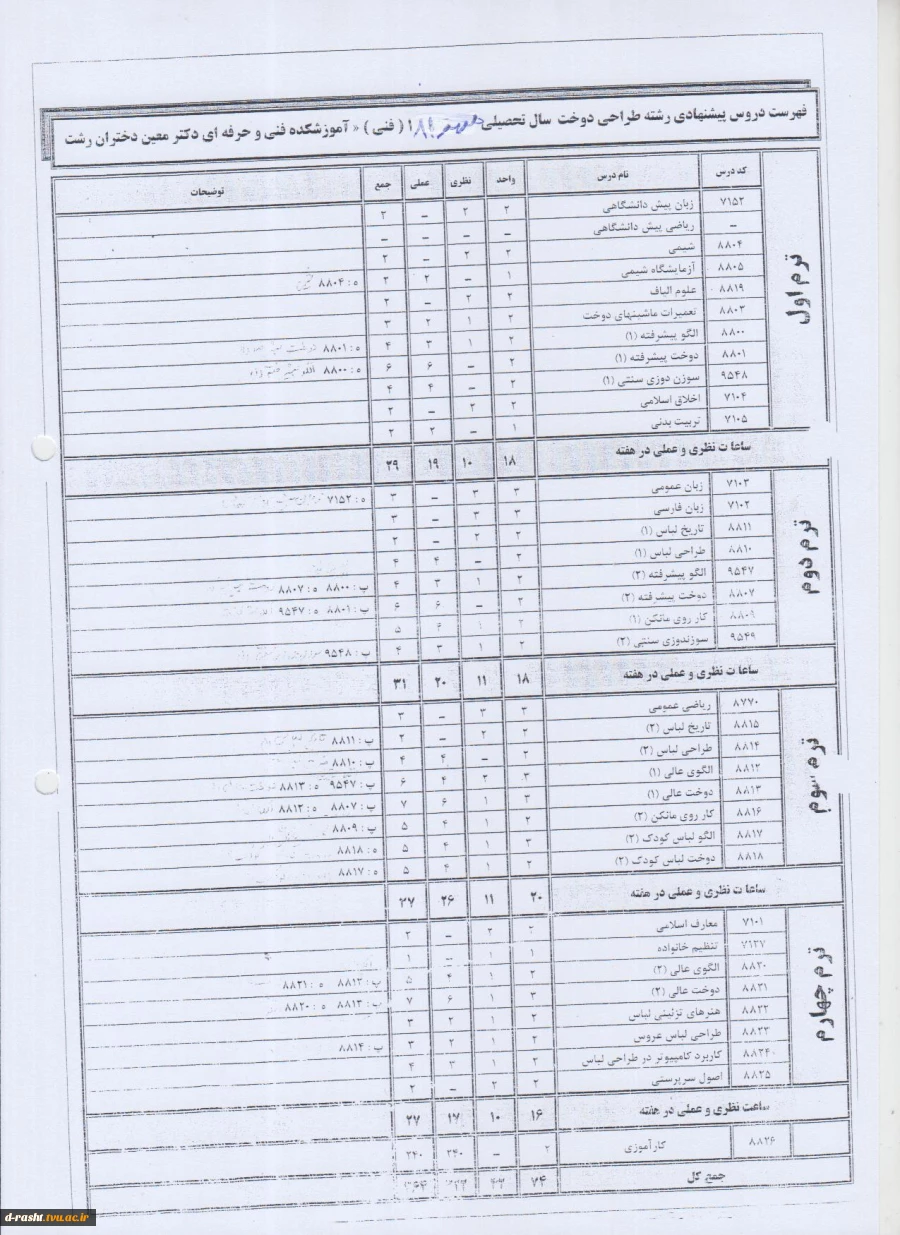 فهرست دروس پیشنهادی رشته طراحی دوخت سال تحصیلی ( فنی ) « آموزشکده فنی و حرفه ای دکتر معین دختران رشت
کد درس نام درس واحد نظری عملی جمع توضیحات
ترم اول
۷۱۵۲ زبان پیش دانشگاهی ۲ ۲ – ۲
– ریاضی پیش دانشگاهی – – – –
۸۸۰۴ شیمی ۲ ۲ – ۲
۸۸۰۵ آزمایشگاه شیمی ۱ – ۲ ۲ ه : ۸۸۰۴
۸۸۱۹ علوم الیاف ۲ ۲ – ۲
۸۸۰۳ تعمیرات ماشینهای دوخت ۲ ۱ ۲ ۳
۸۸۰۰ الگو پیشرفته (۱) ۲ ۱ ۳ ۴ ه : ۸۸۰۱
۸۸۰۱ دوخت پیشرفته (۱) ۲ – ۶ ۶ ه : ۸۸۰۰
۹۵۴۸ سوزن دوزی سنتی (۱) ۲ – ۴ ۴
۷۱۰۴ اخلاق اسلامی ۲ ۲ – ۲
۷۱۰۵ تربیت بدنی ۱ – ۲ ۲
ساعات نظری و عملی در هفته ۱۸ ۱۰ ۱۹ ۲۹
ترم دوم
۷۱۰۳ زبان عمومی ۳ ۳ – ۳ ه : ۷۱۵۲
۷۱۰۲ زبان فارسی ۳ ۳ – ۳
۸۸۱۱ تاریخ لباس (۱) ۲ ۲ – ۲
۸۸۱۰ طراحی لباس (۱) ۲ – ۴ ۴
۹۵۴۷ الگو پیشرفته (۲) ۲ ۱ ۳ ۴ پ : ۸۸۰۰ ه : ۸۸۰۷
۸۸۰۷ دوخت پیشرفته (۲) ۲ – ۶ ۶ پ : ۸۸۰۱ ه : ۹۵۴۷
۸۸۰۹ کار روی مانکن (۱) ۵
۹۵۴۹ سوزندوزی سنتی (۲) ۲ ۱ ۳ ۴ پ : ۹۵۴۸
ساعات نظری و عملی در هفته ۱۸ ۱۱ ۲۰ ۳۱
ترم سوم
۸۷۷۰ ریاضی عمومی ۳ ۳ – ۳
۸۸۱۵ تاریخ لباس (۲) ۲ ۲ – ۲ پ : ۸۸۱۱
۸۸۱۴ طراحی لباس (۲) ۲ – ۴ ۴ پ : ۸۸۱۰
۸۸۱۲ الگوی عالی (۱) ۳ ۲ ۴ ۶ پ : ۹۵۴۷ ه : ۸۸۱۳
۸۸۱۳ دوخت عالی (۱) ۳ ۱ ۶ ۷ پ : ۸۸۰۷ ه : ۸۸۱۲
۸۸۱۶ کار روی مانکن (۲) ۲ ۱ ۴ ۵ پ : ۸۸۰۹
۸۸۱۷ الگو لباس کودک (۲) ۳ ۱ ۴ ۵ ه : ۸۸۱۸
۸۸۱۸ دوخت لباس کودک (۲) ۲ ۱ ۴ ۵ ه : ۸۸۱۷
ساعات نظری و عملی در هفته ۲۰ ۱۱ ۲۶ ۳۷
ترم چهارم
۷۱۰۱ معارف اسلامی ۲ ۲ – ۲
۷۱۳۷ تنظیم خانواده ۱ ۱ – ۱
۸۸۲۰ الگوی عالی (۲) ۲ ۱ ۴ ۵ پ : ۸۸۱۲ ه : ۸۸۲۱
۸۸۲۱ دوخت عالی (۲) ۳ ۱ ۶ ۷ پ : ۸۸۱۳ ه : ۸۸۲۰
۸۸۲۲ هنرهای تزئینی لباس ۲ ۱ ۲ ۳
۸۸۲۳ طراحی لباس عروس ۲ ۱ ۲ ۳ پ : ۸۸۱۴
۸۸۲۴ کاربرد کامپیوتر در طراحی لباس ۲ ۱ ۳ ۴
۸۸۲۵ اصول سرپرستی ۲ ۲ – ۲
ساعت نظری و عملی در هفته ۱۶ ۱۰ ۱۷ ۲۷
۸۸۲۶ کارآموزی ۲ – ۲۴۰ ۲۴۰
جمع کل ۷۴
d-rasht.tvu.ac.ir